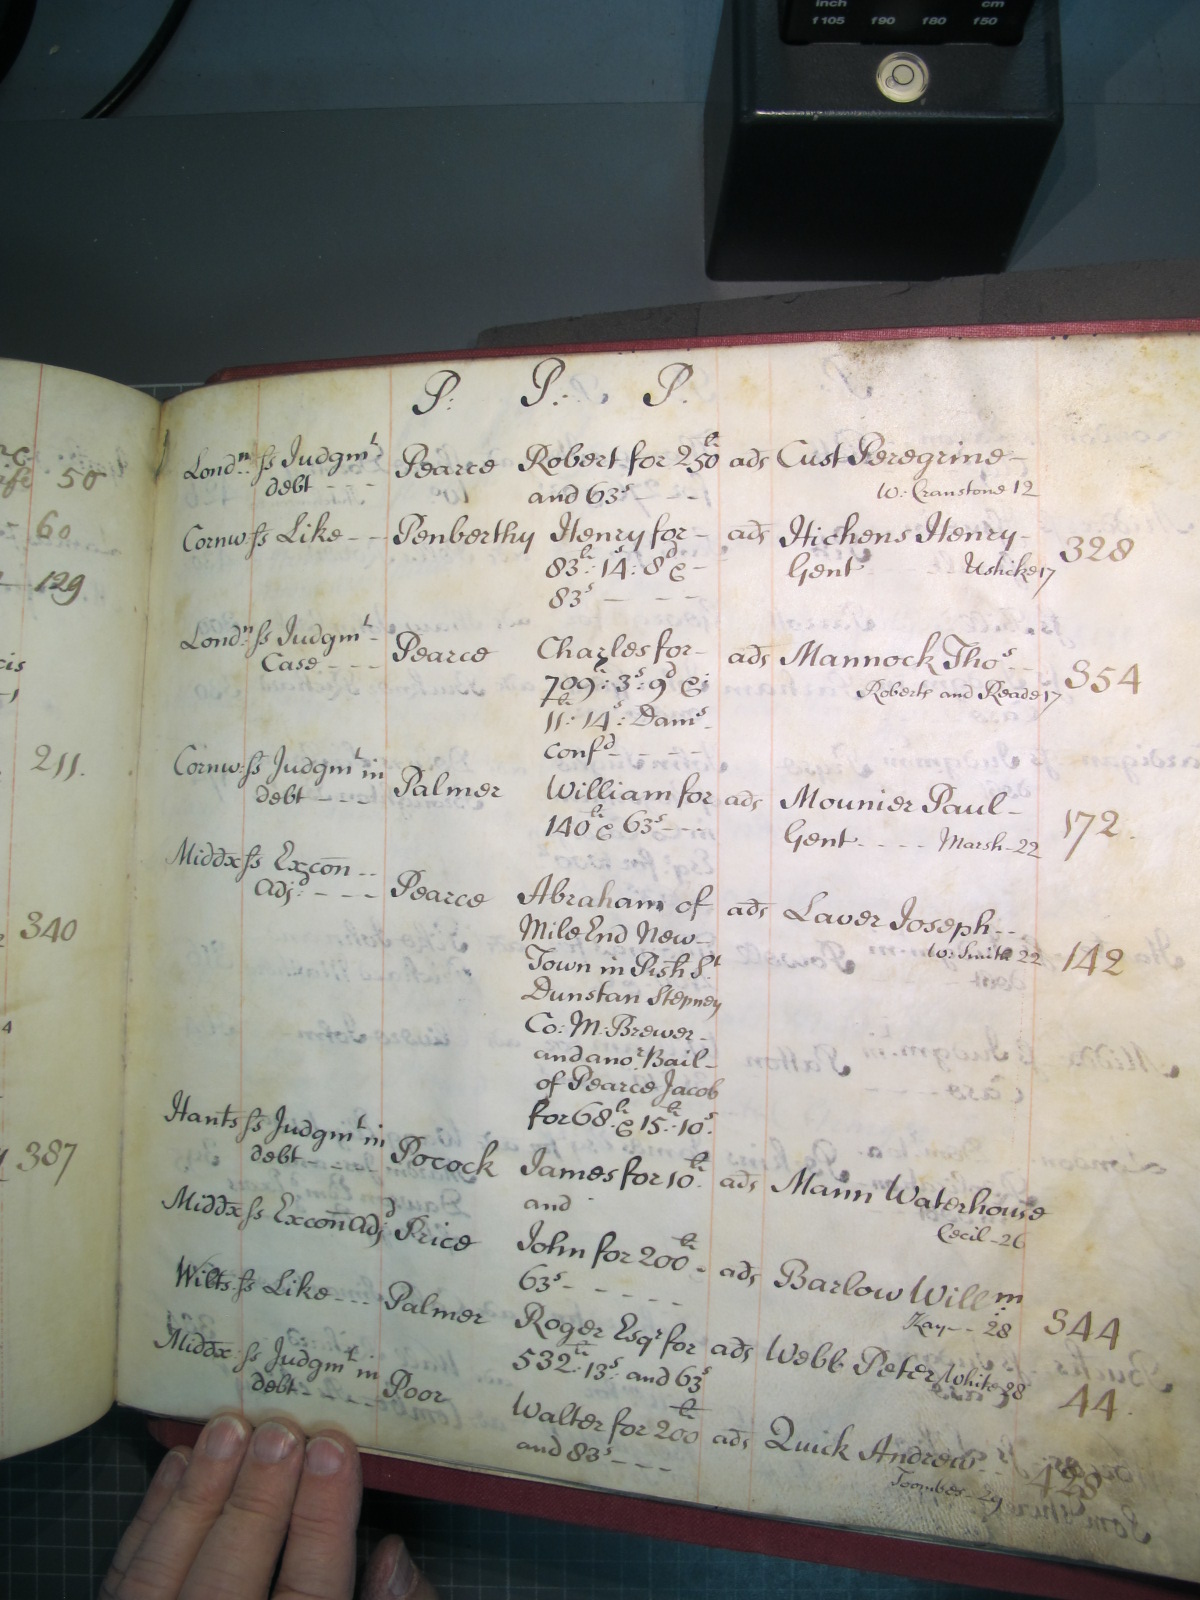 inch cm
f105 f90 f80 f50
50
60
129
211.
340
387
P: P. P.
Lond.n ss Judgmt Pearce Robert for 250li ads Cust Peregrine
debt - - - and 63s - - - W: Cranstone 12
Cornw ss Like - - Penberthy Henry for - ads Hichens Henry - 328
83li: 14s: 8d & - Gent Usticke 17
83s - - -
Lond.n ss Judgmt - Pearce Charles for - ads Mannock Thos - - 354
Case - - - 709li: 3s: 9d & Roberts and Reade 17
11li: 14s: Dams
confd - - - -
Cornw: ss Judgmt in Palmer William for ads Mounier Paul - 172.
debt - - - 140li & 63s - - - Gent - - - - Marsh - 22
Middx ss Excon - -
Adjd - - - - Pearce Abraham of ads Laver Joseph - - 142
Mile End New - W: Smith 22
Town in Pish St
Dunstan Stepney
Co: M: Brewer -
and anor Bail -
of Pearce Jacob
for 68li & 15li: 10s.
Hants ss Judgmt in
debt - - - Pocock James for 10li. ads Mann Waterhouse
and Cecil - 26
Middx ss Excon Adjd Price John for 200li - ads Barlow Willm 344
63s - - - - - Kay - - 28
Wilts. ss Like - - - Palmer Roger Esqr for ads Webb Peter White 28 44.
532li: 13s: and 63s
Middx ss Judgmt in
debt - - - - Poor Walter for 200li ads Quick Andrew - -
and 83s - - - Toombes - 29